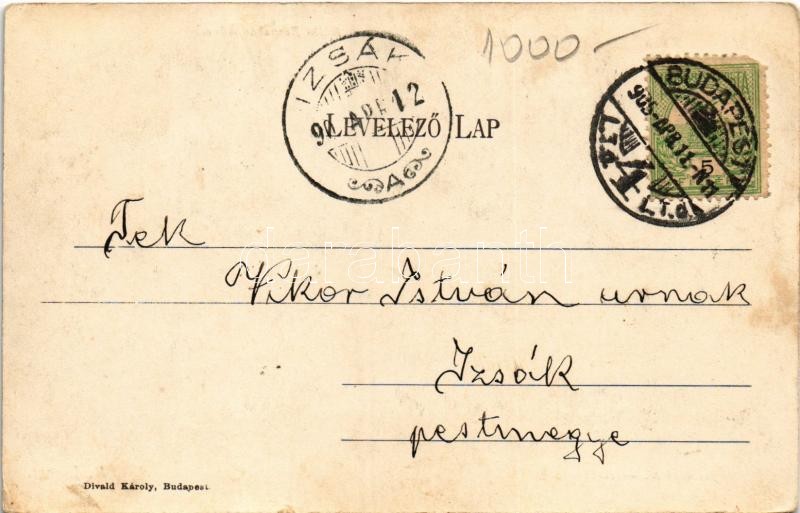 1000-
IZSÁK
APR 12
A
BUDAPEST
905 APR. 11
5
LEVELEZŐ LAP
Tek
Vikor István urnak
Izsák
pestmegye
darabanth
Divald Károly, Budapest.